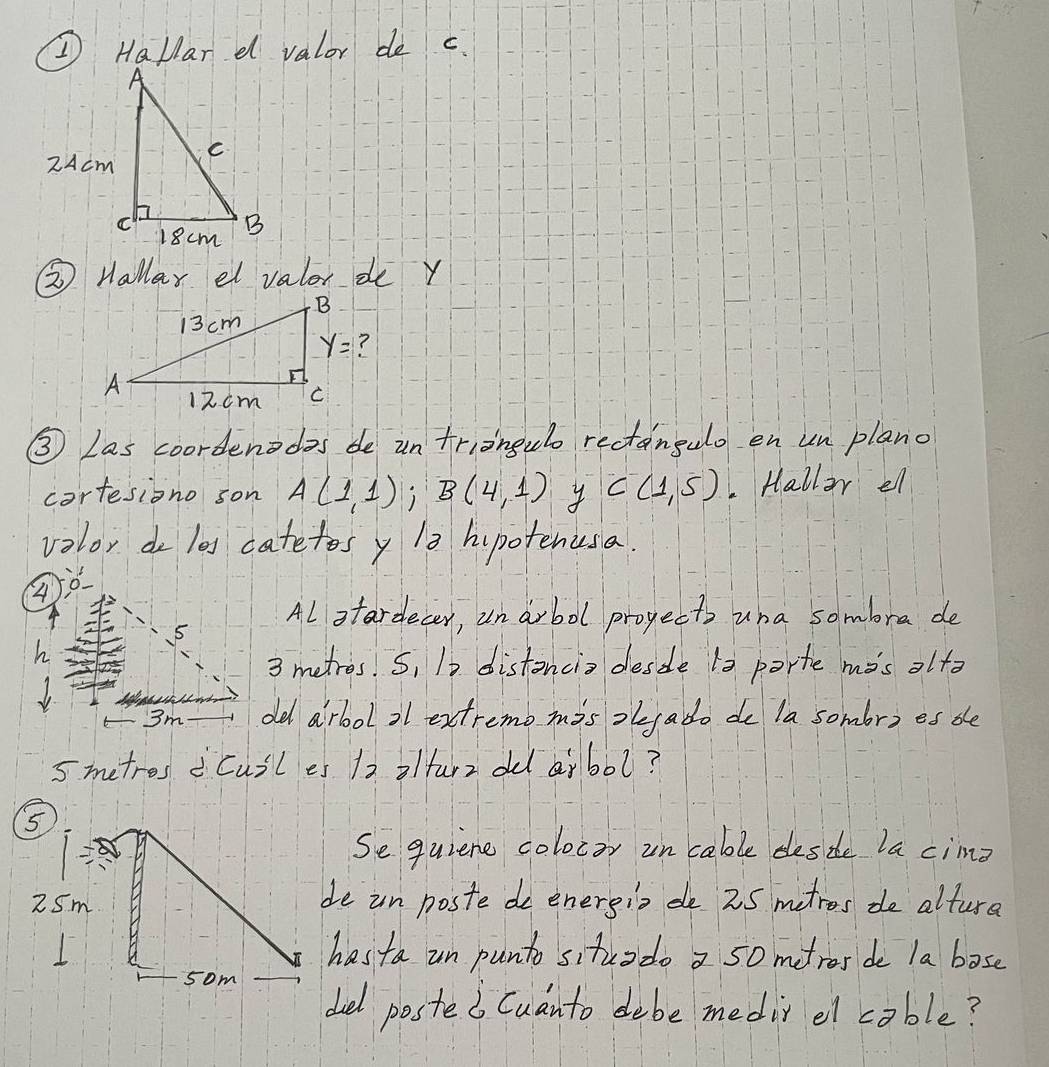 ① Hallar el valor de c.
A
24cm
c
C
18cm
B
② Hallar el valor de Y
13cm
B
Y=?
A
12cm
C
③ Las coordenadas de un triángulo rectángulo en un plano
cartesiano son A(1,1); B(4,1) y C(1,5). Hallar el
valor de los catetos y la hipotenusa.
④
h
5
3m
Al atardecer, un árbol proyecta una sombra de
3 metros. Si la distancia desde la parte más alta
del árbol al extremo más alejado de la sombra es de
5 metros ¿Cuál es la altura del árbol?
⑤
25m
50m
Se quiere colocar un cable desde la cima
de un poste de energía de 25 metros de altura
hasta un punto situado a 50 metros de la base
del poste ¿Cuánto debe medir el cable?